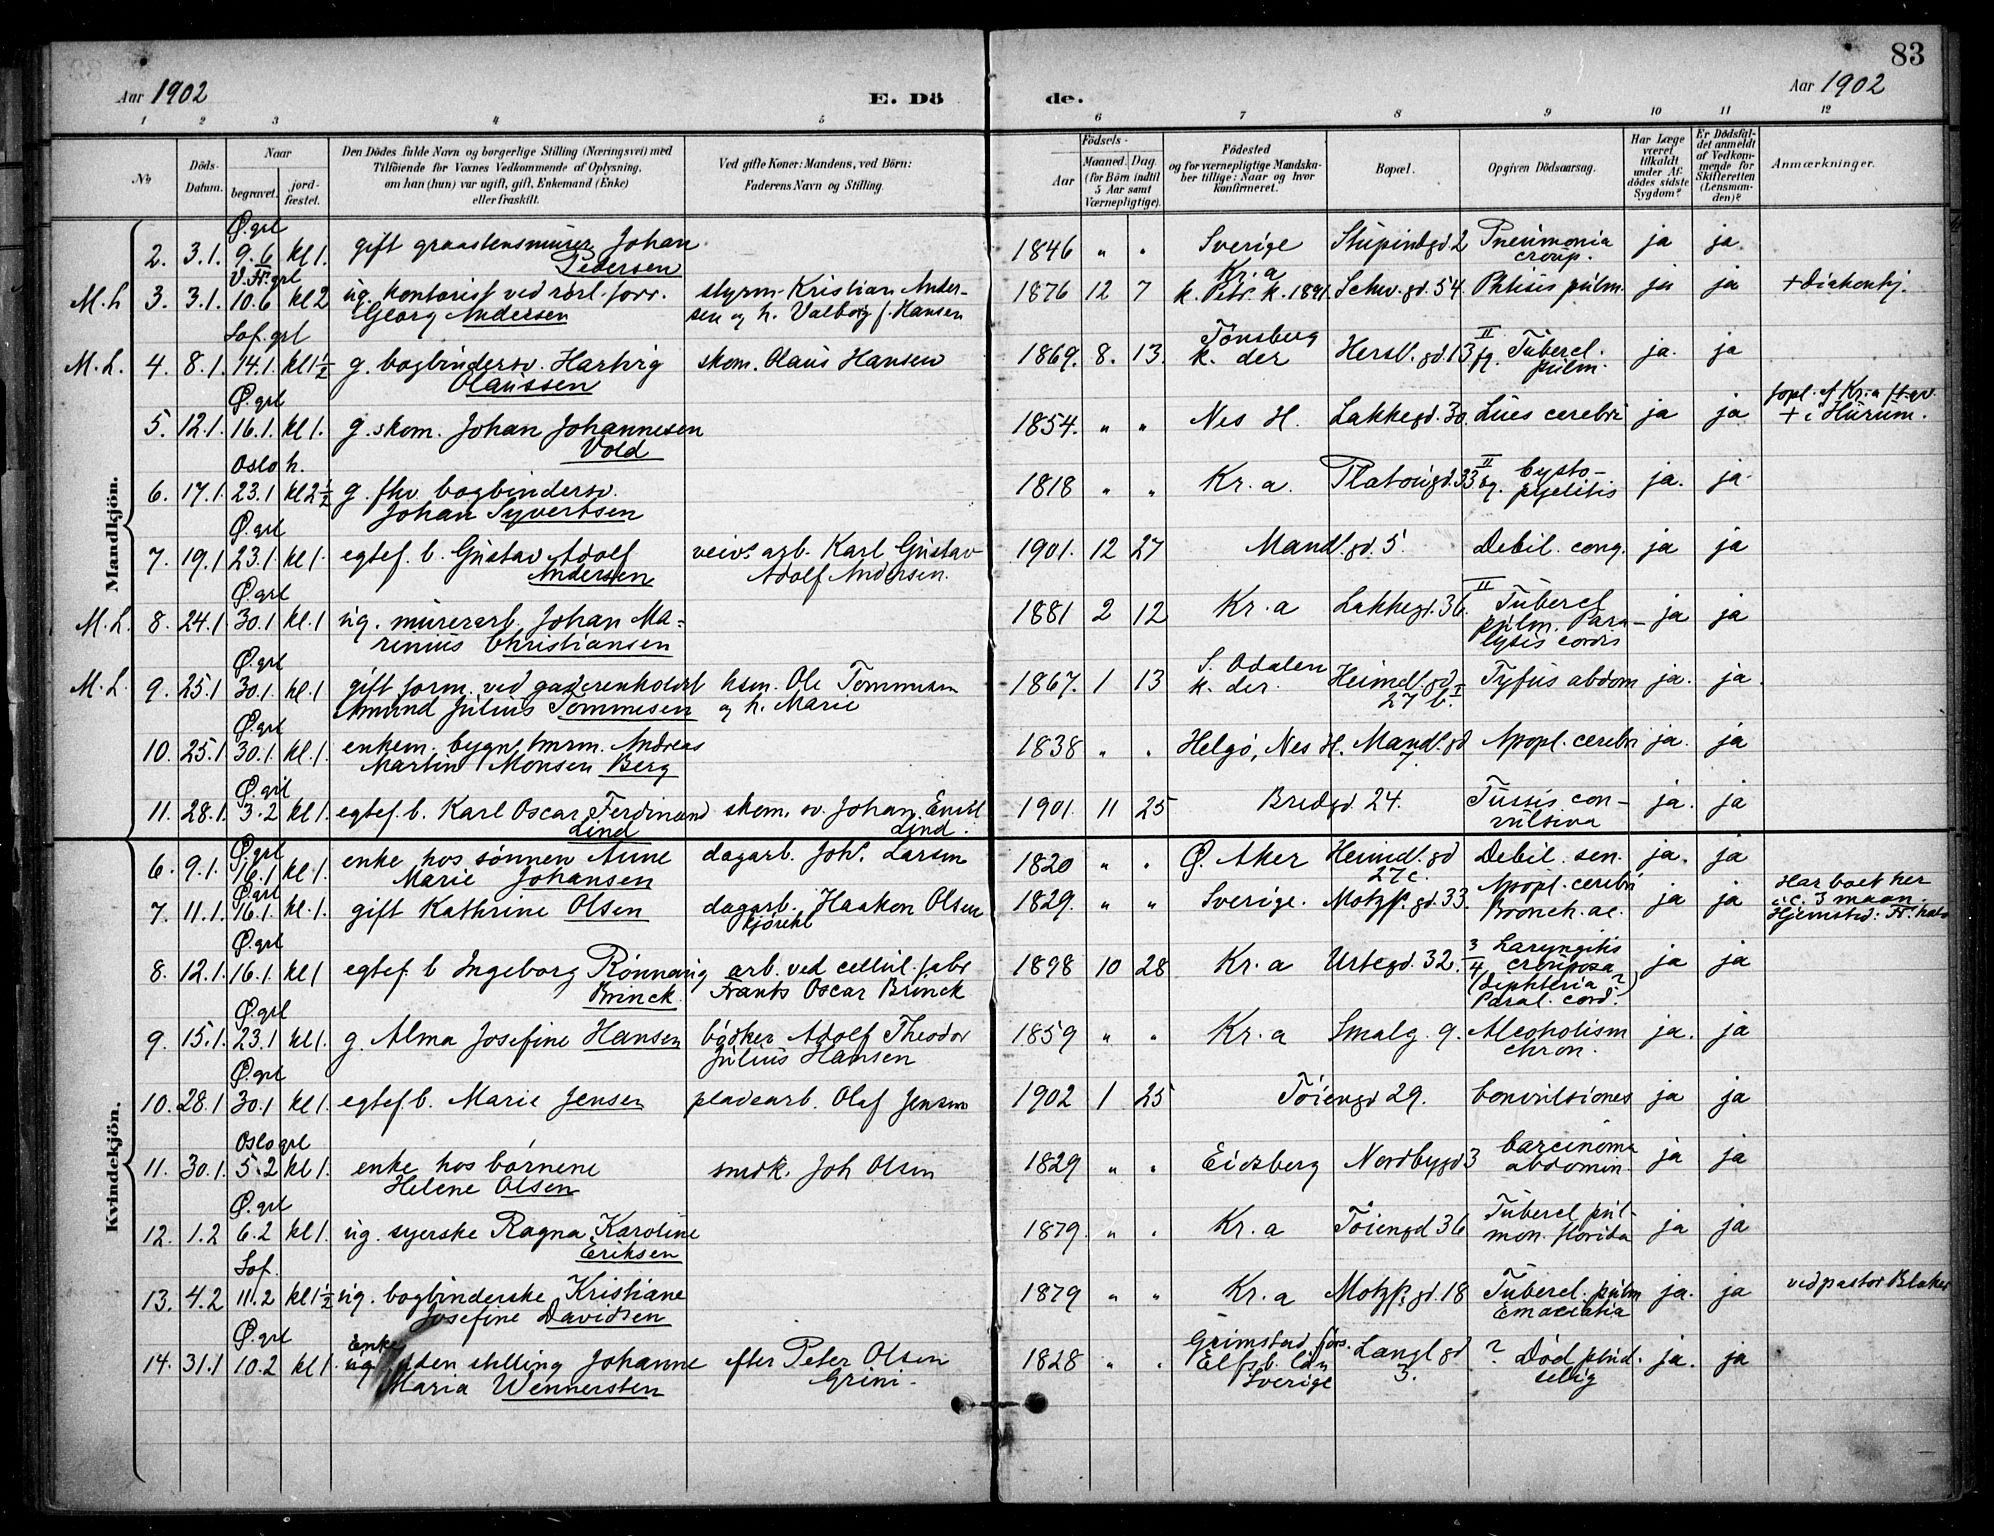 83
Aar 1902 E. Dö de. Aar 1902
1 2 3 4 5 6 7 8 9 10 11 12
No Döds-Datum. Naar begravet. jordfæstet. Den Dödes fulde Navn og borgerlige Stilling (Næringsvei) med Tilföiende for Voxnes Vedkommende af Oplysning, om han (hun) var ugift, gift, Enkemand (Enke) eller fraskilt. Ved gifte Koner: Mandens, ved Börn: Faderens Navn og Stilling. Födsels- Aar Maaned. Dag. (for Börn indtil 5 Aar samt Værnepligtige). Födested og for værnepligtige Mandskaber tillige: Naar og hvor konfirmeret. Bopæl. Opgiven Dödsaarsag. Har Læge været tilkaldt under Afdödes sidste Sygdom? Er Dödsfaldet anmeldt af Vedkommende for Skifteretten (Lensmanden)? Anmærkninger.
Mandkjön.
Ø. grl
2. 3.1. 9.6 kl 1. gift graastensmurer Johan 1846 " " Sverige Stupindgd 2 Pneumonia ja ja.
Pedersen croup.
V. Fr. grl Kr.a
M. L 3. 3.1. 10.6 kl 2 ug. kontorist ved rørl. forr. styrm. Kristian Ander- 1876 12 7 k. Petr. k. 1891 Schw. gd. 54. Phtisis pulm. ja ja + Diakonhj.
Georg Andersen sen og h. Valborg f. Hansen
Sof. grl Tønsberg II
M. L. 4. 8.1. 14.1. kl 1½ g. bogbindersv. Hartvig skom. Olaus Hansen 1869. 8. 13. k. der Hersl. gd. 13 fg. Tubercl. ja. ja
Olaussen pulm.
Ø. grl
5. 12.1. 16.1. kl 1. g. skom. Johan Johannesen 1854. " " Nes H. Lakkegd. 30. Lues cerebri ja ja + i Hurum.
Vold
Oslo h. II
6. 17.1. 23.1 kl 2½ g. fhv. bogbindersv. 1818 " " Kr. a. Platousgd. 33 fg. Cysto- ja. ja.
Johan Syvertsen pyelitis
Ø. grl
7. 19.1 23.1 kl 1. egtef. b. Gustav Adolf veivs. arb. Karl Gustav 1901. 12 27 Mandl. gd. 5. Debil. cong. ja ja
Andersen Adolf Andersen.
Ø. grl II
M. L. 8. 24.1. 30.1 kl. 1 ug. murerarb. Johan Ma- 1881 2 12 Kr. a Lakkegd. 36. Tubercl ja ja
rinius Christiansen pulm. Para-
lysis cordis
Ø. grl S. Odalen
M. L. 9. 25.1 30.1 kl. 1 gift form. ved gaderenholdet hsm. Ole Tommesen 1867. 1 13 k. der. Heimdl. gd Tyfus abdom ja. ja.
Amund Julius Tommesen og h. Marie 27 b. I
Ø. grl
10. 25.1 30.1 kl. 1. enkem. bygn. tmrm. Andreas 1838 " " Helgø, Nes H. Mandl. gd Apopl. cerebri ja. ja
Martin Monsen Berg 7.
Ø. grl
11. 28.1. 3.2 kl 1. egtef. b. Karl Oscar Ferdinand skom. sv. Johan Emil 1901. 11 25 Bredgd. 24. Tussis con- ja. ja
Lind Lind. vulsiva
Kvindekjön.
Ø. grl
6. 9.1. 16.1 kl 1. enke hos sønnen Anne dagarb. Joh. Larsen 1820 " " Ø. Aker Heimdl. gd Debil. sen. ja. ja
Marie Johansen 27 c.
Ø. grl Apopl. cerebri Har boet her
7. 11.1. 16.1. kl. 1. gift Kathrine Olsen dagarb. Haakon Olsen 1829. " " Sverige. Motzf. gd. 33. Bronch. ac. ja ja i c. 3 maan.
Hjemsted: Fr. hald
Ø. grl 3/4 Laryngitis
8. 12.1. 16.1. kl 1 egtef. b Ingeborg Rønnaug arb. ved cellul. fabr 1898 10 28 Kr. a Urtegd. 32. crouposa ja ja
Brinck. Frants Oscar Brinck (diphteria?)
Paral. cord.
Ø. grl
9. 15.1. 23.1 kl 1. g. Alma Josefine Hansen bødker Adolf Theodor 1859 " " Kr. a Smalg. 9. Alcoholism ja. ja
Julius Hansen chron.
Ø. grl
10. 28.1 30.1 kl 1. egtef. b. Marie Jensen pladearb. Olaf Jensen 1902 1 25 Tøiengd 29. Convulsiones ja ja
Oslo grl
11. 30.1. 5.2 kl 1. enke hos børnene smdk. Joh Olsen 1829 " " Eidsberg Nordbygd 3 Carcinoma ja ja
Helene Olsen abdomin.
Ø. grl
12. 1.2 6.2 kl 1. ug. syerske Ragna Karoline 1879. " " Kr. a Tøiengd 36 Tubercl pul- ja ja
Eriksen mon. florida
Sof.
13. 4.2 11.2 kl 1½ ug. bogbinderske Kristiane 1879 " " Kr. a Motzf. gd. 18 Tubercl. pulm ja. ja ved pastor Blaker
Josefine Davidsen Emaciatia
Ø. grl Enke Grimstad førs.
14. 31.1 10.2 kl 1. ug. uden stilling Johanne efter Peter Olsen 1828 " " Elfsb. län Langl gd ? Død plud. ja. ja
Maria Wennersten Grini. Sverige 3. selig